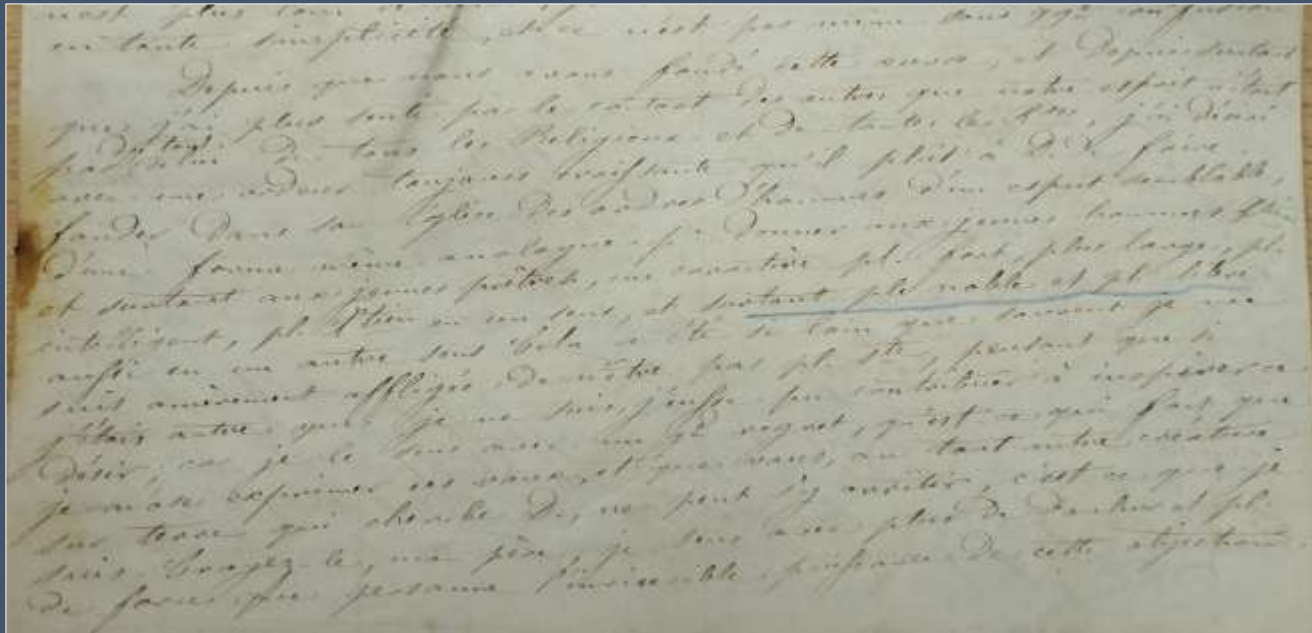 en toute simplicité, et ce n'est pas même sans gde confusion
Depuis que nous avons fondé cette œuvre, et depuis surtout
que j'ai plus senti par le contact des autres que notre esprit n'était
pas celui de tous les Religieux et de toutes les Rses, j'ai désiré
avec une ardeur toujours croissante qu'il plût à D. de faire
fonder dans son Eglise des ordres d'hommes d'un esprit semblable,
d'une forme même analogue pr donner aux jeunes hommes
et surtout aux jeunes prêtres, un caractère pl. fort, plus large, pl.
intelligent, pl. chrétien en un sens, et surtout pls noble et pl. libre
aussi en un autre sens. Cela a été si loin que souvent je me
suis amèrement affligée de n'être pas pl. ste, pensant que si
j'étais autre que je ne suis, j'eusse pu contribuer à inspirer ce
désir, car je le sens avec un gd regret, qu'est-ce qui fait que
je n'ose exprimer ces vœux, et que vous, ou tout autre créature
sur terre qui cherche D., ne peut s'y arrêter, c'est ce que je
suis. Croyez-le, mon père, je sens avec plus de douleur et pl.
de force que personne l'invincible puissance de cette objection.